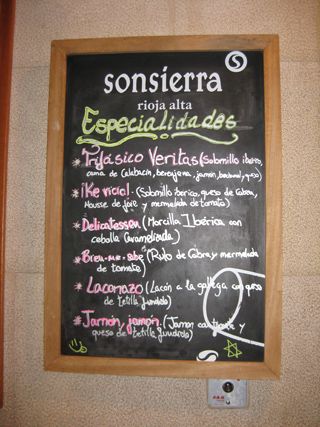 sonsierra
rioja alta
Especialidades
* Trifásico Veritas (Solomillo ibérico,
cama de Calabacín, berenjena, jamón, bechamel, queso)
* ¡Ke vicial! (Solomillo ibérico, queso de Cabra,
Mousse de foie y mermelada de tomate)
* Delicatessen (Morcilla Ibérica con
cebolla Caramelizada)
* Bien-me-sabe (Rulo de Cabra y mermelada
de tomate)
* Laconazo (Lacón a la gallega con queso
de tetilla fundido)
* Jamón, jamón. (Jamón y
queso de tetilla fundido)